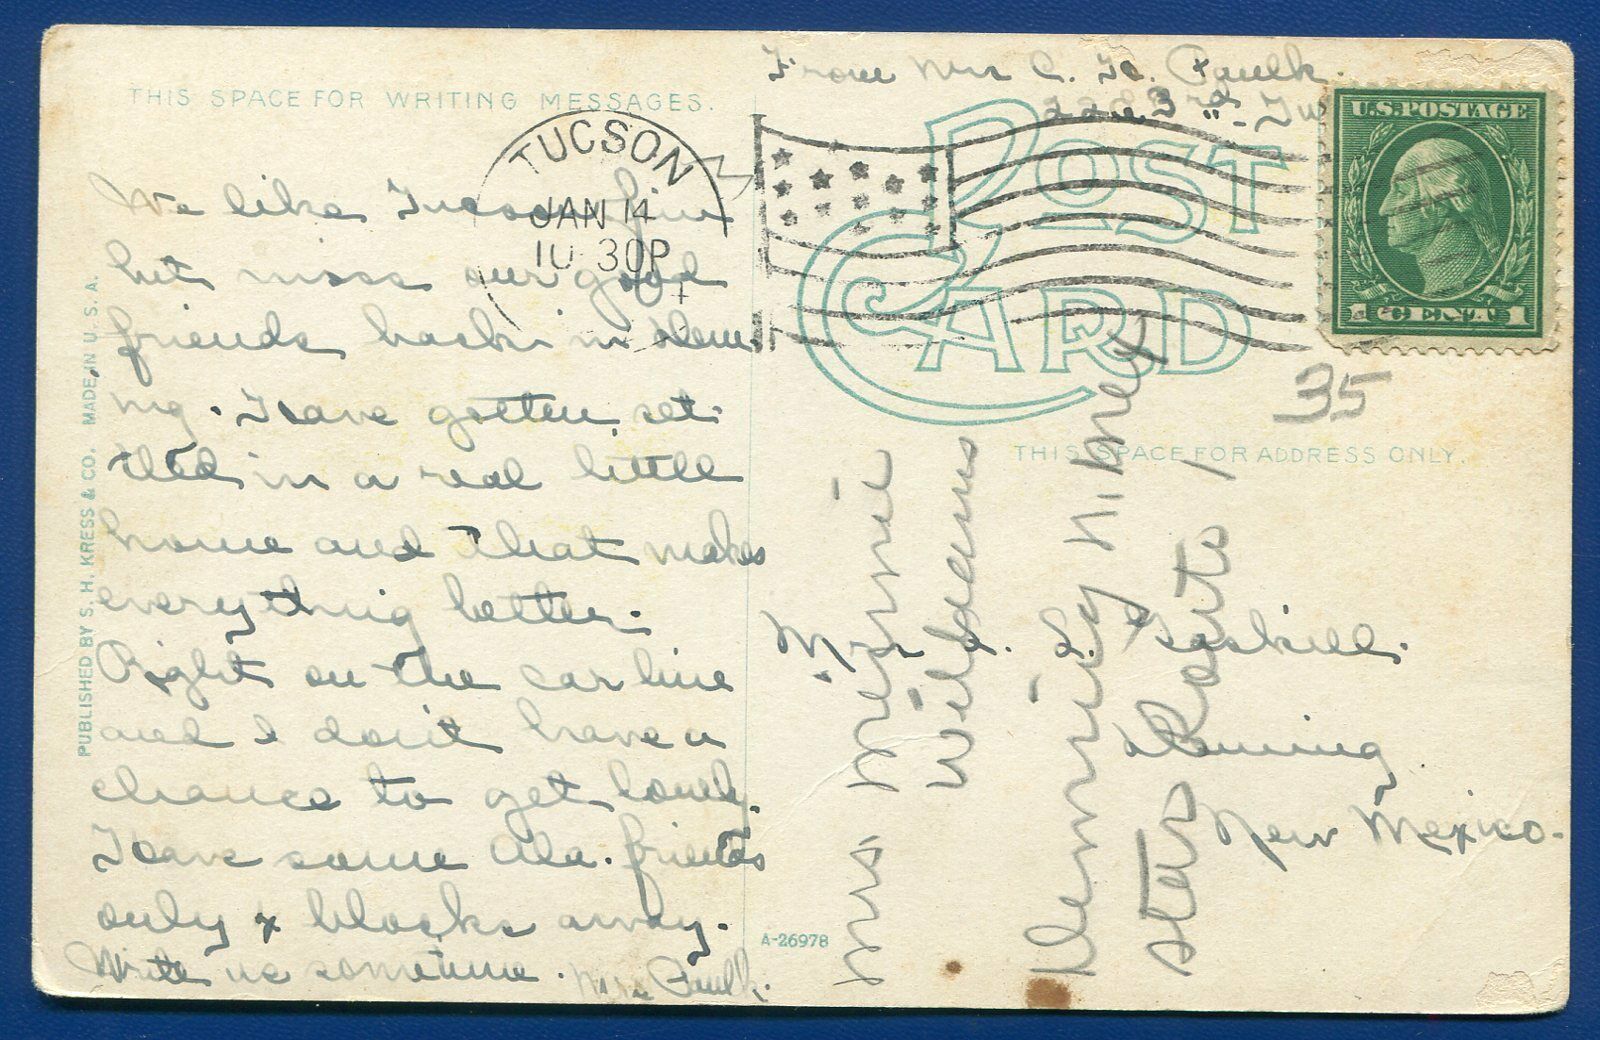 THIS SPACE FOR WRITING MESSAGES.
We like Tucson fine
but miss our good
friends back in Dem-
ing. Have gotten set-
tled in a real little
home and that makes
everything better.
Right on the car line
and I don't have a
chance to get lonely.
Have some Ala. friends
only 4 blocks away.
Write us sometime. Mrs Paulk.
PUBLISHED BY S. H. KRESS & CO. MADE IN U. S. A.
TUCSON
JAN 14
10 30P
From Mrs C. H. Paulk.
3rd
POST CARD
U.S. POSTAGE
1 CENT 1
35
THIS SPACE FOR ADDRESS ONLY.
Mrs. L. Gaskill.
Deming
New Mexico.
Mrs Minnie
Williams
A-26978